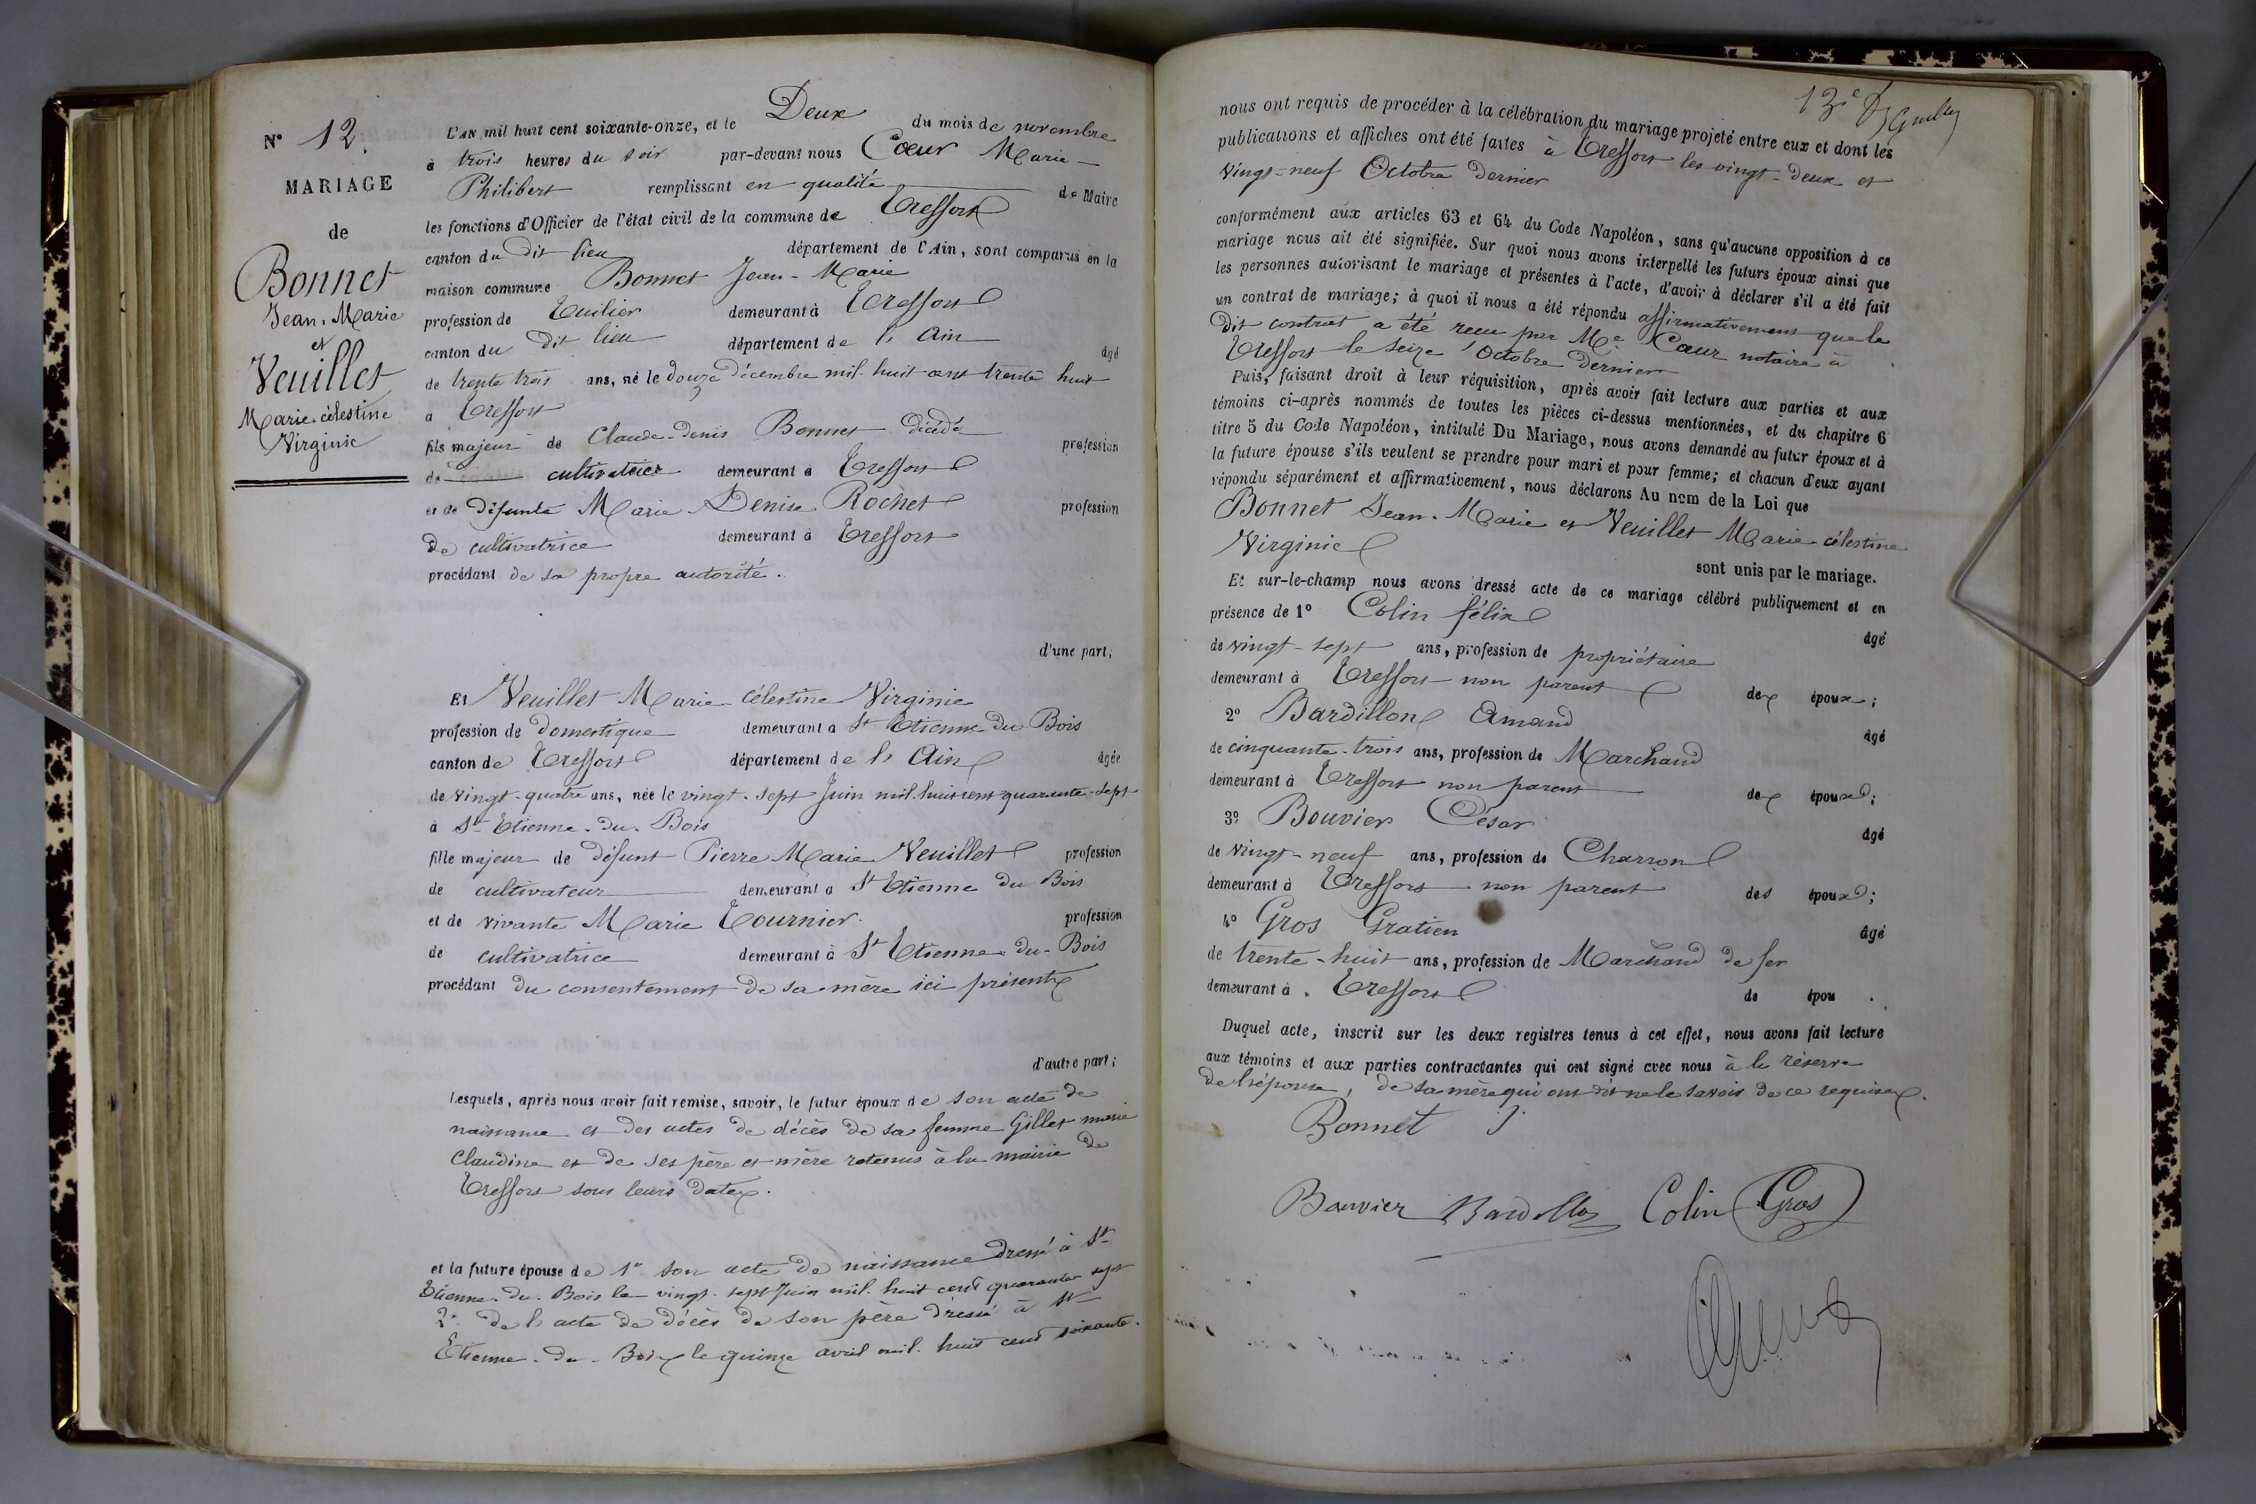 N° 12.
MARIAGE
de
Bonnet
Jean-Marie
et
Veuillet
Marie-célestine
Virginie
L'AN mil huit cent soixante-onze, et le Deux du mois de novembre
à trois heures du soir par-devant nous Cœur Marie-
Philibert remplissant en qualité de Maire
les fonctions d'Officier de l'état civil de la commune de Treffort
canton du dit lieu département de l'Ain, sont comparus en la
maison commune Bonnet Jean-Marie
profession de Tuilier demeurant à Treffort
canton du dit lieu département de l'Ain âgé
de trente trois ans, né le douze décembre mil-huit-cent trente huit
à Treffort
fils majeur de Claude-denis Bonnet décédé profession
de cultivateur demeurant à Treffort
et de défunte Marie Denise Rochet profession
de cultivatrice demeurant à Treffort
procédant de sa propre autorité.
d'une part;
Et Veuillet Marie-Célestine Virginie
profession de domestique demeurant à St Etienne du Bois
canton de Treffort département de l'Ain âgée
de vingt-quatre ans, née le vingt-sept Juin mil-huit cent quarante-sept
à St Etienne-du-Bois
fille majeur de défunt Pierre Marie Veuillet profession
de cultivateur demeurant à St Etienne du Bois
et de vivante Marie Tournier profession
de cultivatrice demeurant à St Etienne-du-Bois
procédant du consentement de sa mère ici présente
d'autre part;
Lesquels, après nous avoir fait remise, savoir, le futur époux de son acte de
naissance et des actes de décès de sa femme Gillet marie
Claudine et de ses père et mère retenus à la mairie de
Treffort sous leurs dates.
et la future épouse de 1° son acte de naissance dressé à St
Etienne-du-Bois le vingt-sept Juin mil-huit cent quarante sept
2° de l'acte de décès de son père dressé à St
Etienne-du-Bois le quinze avril mil-huit cent soixante.
13e
nous ont requis de procéder à la célébration du mariage projeté entre eux et dont les
publications et affiches ont été faites à Treffort les vingt-deux et
vingt-neuf Octobre dernier
conformément aux articles 63 et 64 du Code Napoléon, sans qu'aucune opposition à ce
mariage nous ait été signifiée. Sur quoi nous avons interpellé les futurs époux ainsi que
les personnes autorisant le mariage et présentes à l'acte, d'avoir à déclarer s'il a été fait
un contrat de mariage; à quoi il nous a été répondu affirmativement que le
dit contrat a été reçu par Me Cœur notaire à
Treffort le seize Octobre dernier
Puis, faisant droit à leur réquisition, après avoir fait lecture aux parties et aux
témoins ci-après nommés de toutes les pièces ci-dessus mentionnées, et du chapitre 6
titre 5 du Code Napoléon, intitulé Du Mariage, nous avons demandé au futur époux et à
la future épouse s'ils veulent se prendre pour mari et pour femme; et chacun d'eux ayant
répondu séparément et affirmativement, nous déclarons Au nom de la Loi que
Bonnet Jean-Marie et Veuillet Marie-célestine
Virginie
sont unis par le mariage.
Et sur-le-champ nous avons dressé acte de ce mariage célébré publiquement et en
présence de 1° Colin félix
âgé
de vingt-sept ans, profession de propriétaire
demeurant à Treffort non parent des époux;
2° Bardillon Amand
âgé
de cinquante-trois ans, profession de Marchand
demeurant à Treffort non parent des époux;
3° Bouvier César
âgé
de vingt-neuf ans, profession de Charron
demeurant à Treffort non parent des époux;
4° Gros Gratien
âgé
de trente-huit ans, profession de Marchand de fer
demeurant à Treffort de épou .
Duquel acte, inscrit sur les deux registres tenus à cet effet, nous avons fait lecture
aux témoins et aux parties contractantes qui ont signé avec nous à la réserve
de l'épouse, de sa mère qui ont dit ne le savoir de ce requises.
Bonnet J
Bouvier Bardillon Colin Gros